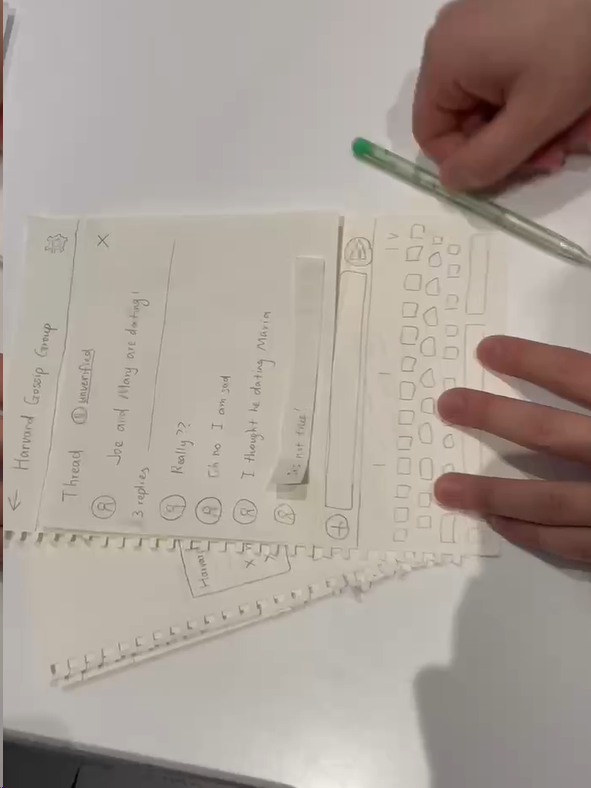 ← Harvard Gossip Group
Thread unverified
Joe and Mary are dating! X
3 replies
Really??
Oh no I am sad
I thought he dating Maria
is not true!
Harvar
X